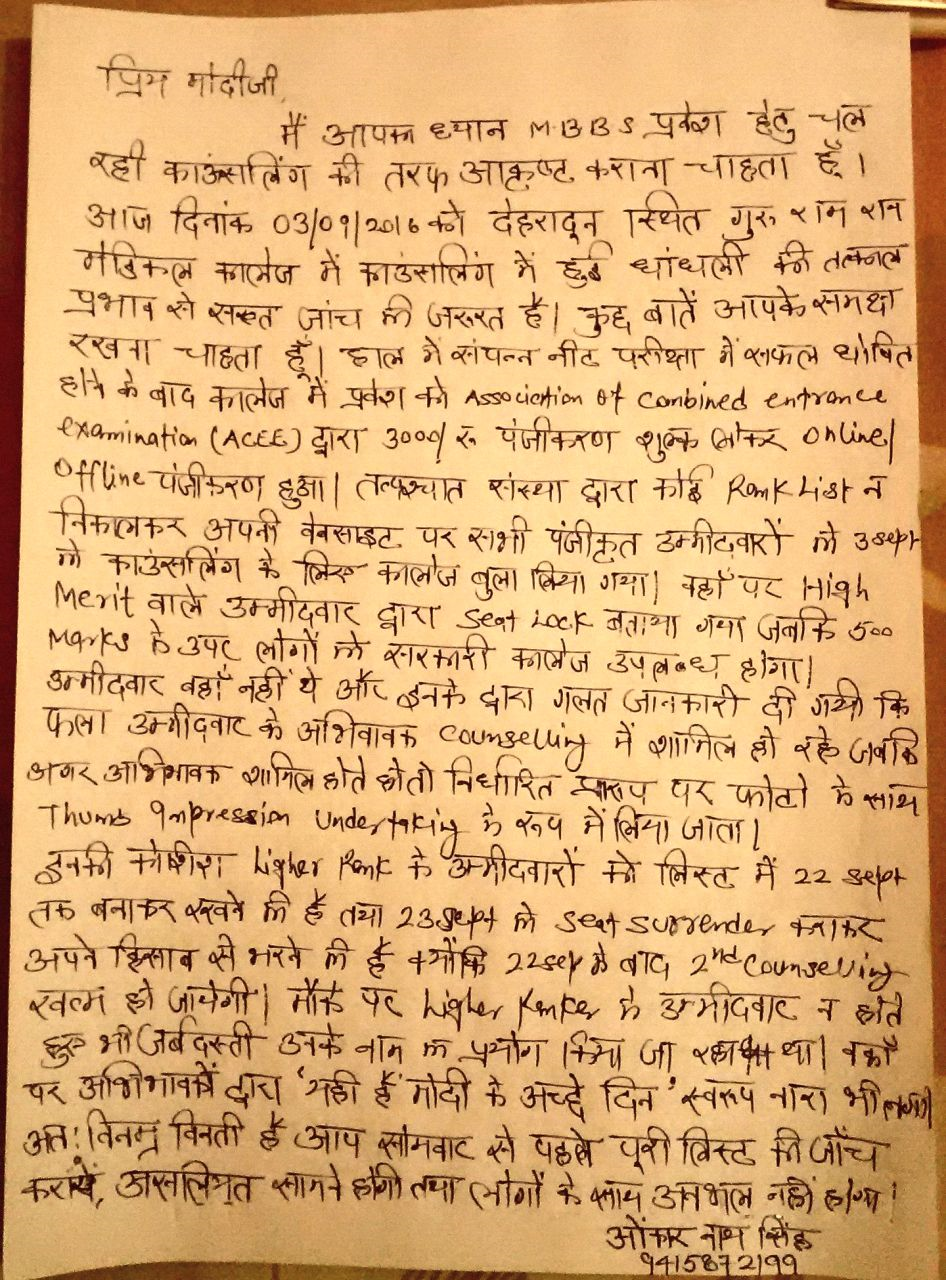 प्रिय मोदीजी,
मैं आपका ध्यान M.B.B.S प्रवेश हेतु चल
रही काउंसलिंग की तरफ आकृष्ट कराना चाहता हूँ।
आज दिनांक 03/09/2016 को देहरादून स्थित गुरु राम राम
मेडिकल कालेज में काउंसलिंग में हुई धांधली की तत्काल
प्रभाव से सख्त जांच की जरूरत है। कुछ बातें आपके समक्ष
रखना चाहता हूँ। हाल में संपन्न नीट परीक्षा में सफल घोषित
होने के बाद कालेज में प्रवेश को Association of Combined entrance
examination (ACEE) द्वारा 3000/ रु पंजीकरण शुल्क लेकर Online/
Offline पंजीकरण हुआ। तत्पश्चात संस्था द्वारा कोई Rank List न
निकालकर अपनी वेबसाइट पर सभी पंजीकृत उम्मीदवारों को 3 sept
को काउंसलिंग के लिए कालेज बुला लिया गया। वहाँ पर High
Merit वाले उम्मीदवार द्वारा Seat Lock बताया गया जबकि 500
Marks के उपर लोगों को सरकारी कालेज उपलब्ध होगा।
उम्मीदवार वहाँ नहीं थे और इनके द्वारा गलत जानकारी दी गयी कि
फला उम्मीदवार के अभिवावक Counselling में शामिल हो रहे जबकि
अगर अभिभावक शामिल होते होतो निर्धारित प्रारूप पर फोटो के साथ
Thumb Impression Undertaking के रूप में लिया जाता।
इनकी कोशिश higher Rank के उम्मीदवारों को लिस्ट में 22 sept
तक बनाकर रखने की है तथा 23 sept को Seat Surrender कराकर
अपने हिसाब से भरने की है क्योंकि 22 sep के बाद 2nd Counselling
खत्म हो जायेगी। मौके पर higher Ranker के उम्मीदवार न होते
हुए भी जर्बदस्ती उनके नाम का प्रयोग किया जा रहा था। वहाँ
पर अभिभावकों द्वारा 'यही हैं मोदी के अच्छे दिन' स्वरूप नारा भी
अत: विनम्र विनती है आप सोमवार से पहले पूरी लिस्ट की जाँच
करायें, असलियत सामने होगी तथा लोगों के साथ अनभल नहीं होगा।
ओंकार नाथ सिंह
9415872199